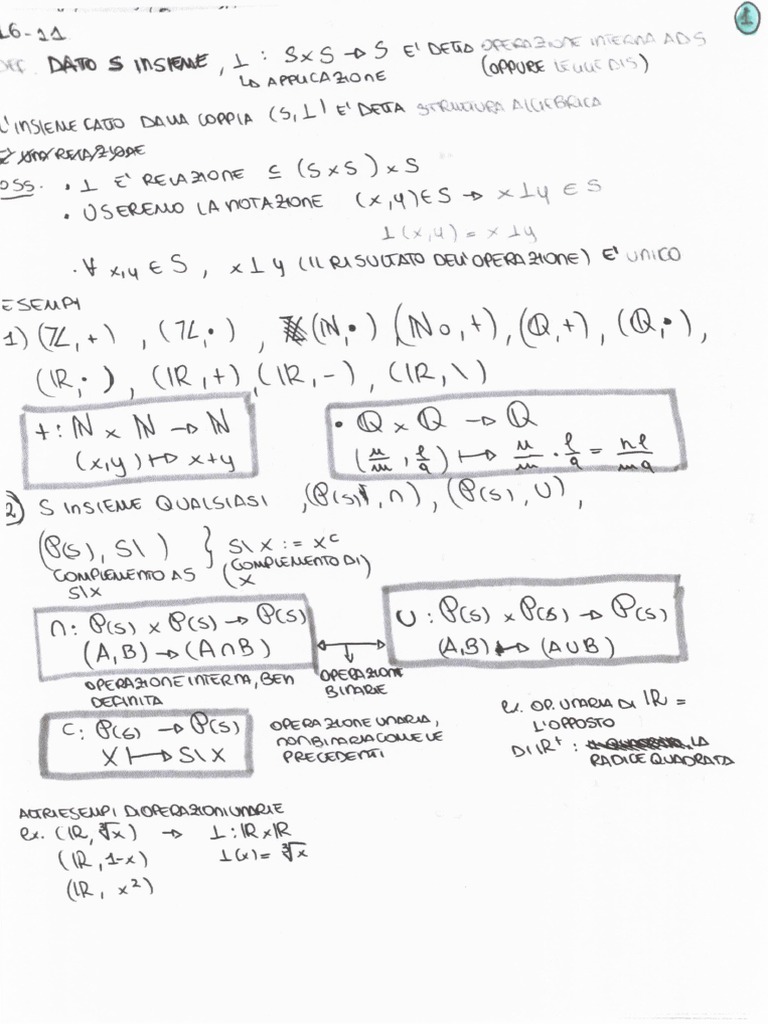 1
16-11
DEF. DATO S INSIEME, ⊥ : S×S → S E' DETTA OPERAZIONE INTERNA AD S
LA APPLICAZIONE (OPPURE LEGGE DI S)
L'INSIEME DATO DALLA COPPIA (S,⊥) E' DETTA STRUTTURA ALGEBRICA
OSS. • ⊥ E' RELAZIONE ⊆ (S×S)×S
• USEREMO LA NOTAZIONE (x,y)∈S → x⊥y ∈ S
⊥(x,y) = x⊥y
• ∀ x,y ∈ S, x⊥y (IL RISULTATO DELL'OPERAZIONE) E' UNICO
ESEMPI
1) (ℤ,+), (ℤ,•), (ℕ,•) (ℕ₀,+), (ℚ,+), (ℚ,•),
(ℝ,•), (ℝ,+), (ℝ,-), (ℝ,\)
+: ℕ × ℕ → ℕ
(x,y) ↦ x+y
• ℚ × ℚ → ℚ
(n/m, l/q) ↦ n/m · l/q = nl/mq
2) S INSIEME QUALSIASI, (P(S), ∩), (P(S), ∪),
(P(S), S\ ) } S\X := Xᶜ
COMPLEMENTO A S (COMPLEMENTO DI)
S\X ( X
∩: P(S) × P(S) → P(S)
(A,B) → (A∩B)
OPERAZIONE INTERNA, BEN
DEFINITA
OPERAZIONI
BINARIE
∪: P(S) × P(S) → P(S)
(A,B) ↦ (A∪B)
C: P(S) → P(S)
X ↦ S\X
OPERAZIONE UNARIA,
NON BINARIA COME LE
PRECEDENTI
ex. OP. UNARIA DI ℝ =
L'OPPOSTO
DI ℝ⁺: LA
RADICE QUADRATA
ALTRI ESEMPI DI OPERAZIONI UNARIE
ex. (ℝ, ∛x) → ⊥: ℝ×ℝ
(ℝ, 1-x) ⊥(x) = ∛x
(ℝ, x²)